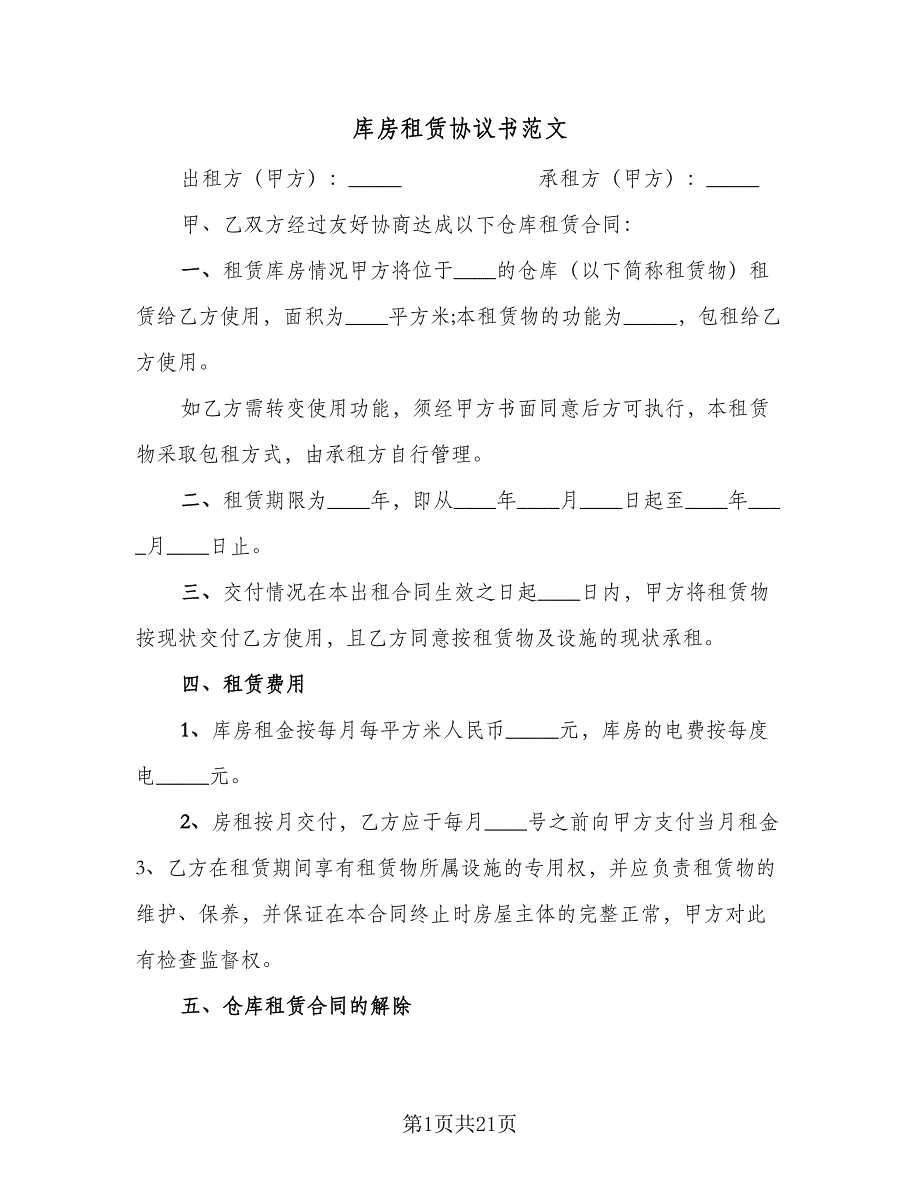 库房租赁协议书范文
出租方（甲方）：_____ 承租方（甲方）：_____
甲、乙双方经过友好协商达成以下仓库租赁合同：
一、租赁库房情况甲方将位于____的仓库（以下简称租赁物）租
赁给乙方使用，面积为____平方米;本租赁物的功能为_____，包租给乙
方使用。
如乙方需转变使用功能，须经甲方书面同意后方可执行，本租赁
物采取包租方式，由承租方自行管理。
二、租赁期限为____年，即从____年____月____日起至____年___
_月____日止。
三、交付情况在本出租合同生效之日起____日内，甲方将租赁物
按现状交付乙方使用，且乙方同意按租赁物及设施的现状承租。
四、租赁费用
1、库房租金按每月每平方米人民币_____元，库房的电费按每度
电_____元。
2、房租按月交付，乙方应于每月____号之前向甲方支付当月租金
3、乙方在租赁期间享有租赁物所属设施的专用权，并应负责租赁物的
维护、保养，并保证在本合同终止时房屋主体的完整正常，甲方对此
有检查监督权。
五、仓库租赁合同的解除
第1页共21页